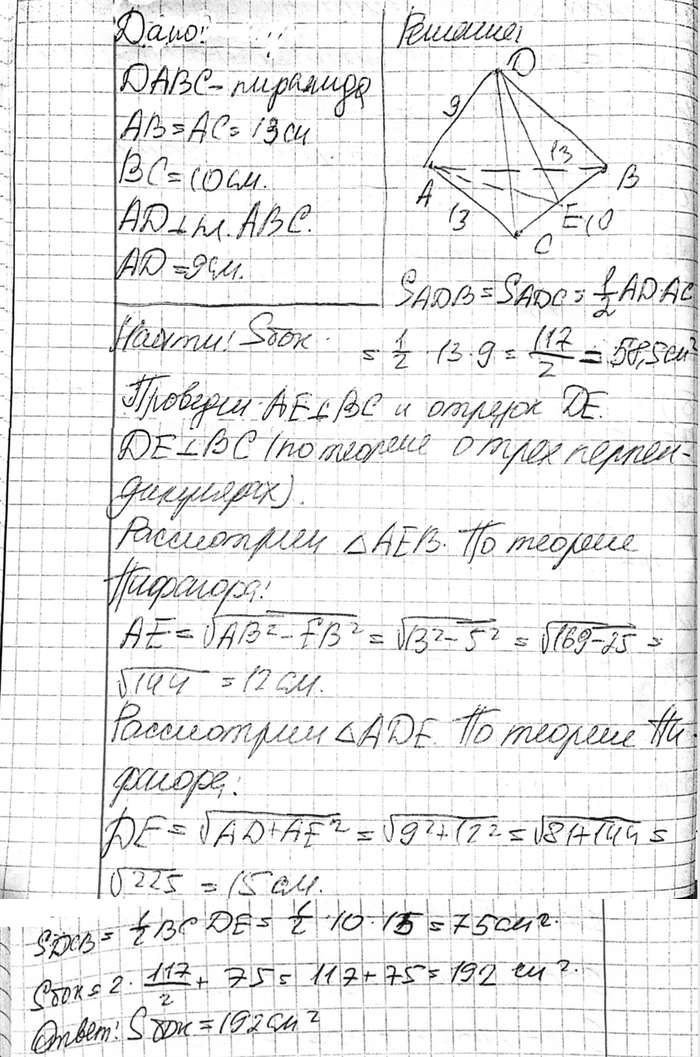 Дано:
Решение:
DABC - пирамида
AB = AC = 13 см
BC = 10 см.
AD ⊥ пл. ABC.
AD = 9 см.
D
9
13
A
B
13
E
10
C
S ADB = S ADC = 1/2 AD·AC
Найти: Sбок.
= 1/2 · 13 · 9 = 117/2 = 58,5 см²
Проведем AE ⊥ BC и отрезок DE.
DE ⊥ BC (по теореме о трех перпен-
дикулярах).
Рассмотрим △AEB. По теореме
Пифагора:
AE = √(AB² - EB²) = √(13² - 5²) = √(169-25) =
√144 = 12 см.
Рассмотрим △ADE. По теореме Пи-
фагора:
DE = √(AD+AE²) = √(9²+12²) = √(81+144) =
√225 = 15 см.
S DCB = 1/2 BC DE = 1/2 · 10 · 15 = 75 см².
Sбок = 2 · 117/2 + 75 = 117 + 75 = 192 см².
Ответ: Sбок = 192 см²